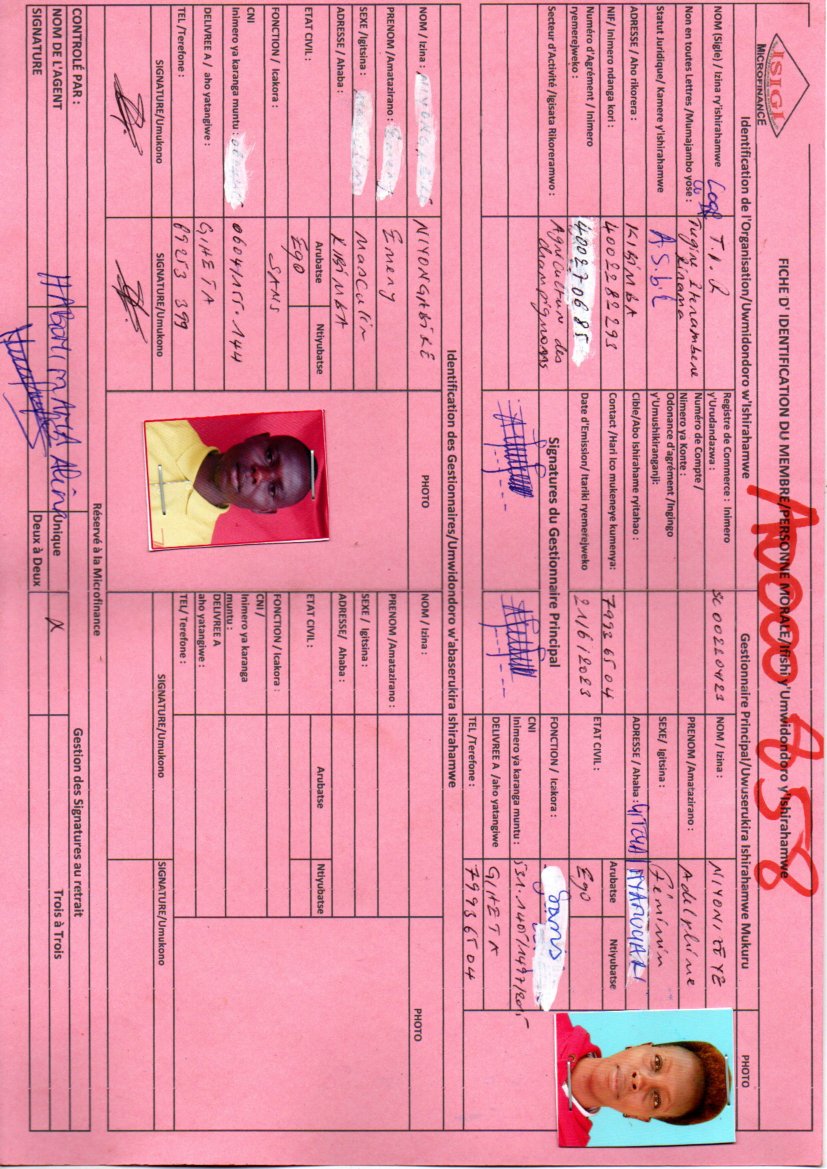 ISIGI
MICROFINANCE
FICHE D' IDENTIFICATION DU MEMBRE/PERSONNE MORALE/Ifishi y'Umwidondoro y'Ishirahamwe
A58
Identification de l'Organisation/Uwmidondoro w'Ishirahamwe
Gestionnaire Principal/Uwuserukira Ishirahamwe Mukuru
NOM (Sigle) / Izina ry'ishirahamwe
T.I.R
Non en toutes Lettres /Mumajambo yose :
Tugire
Statut Juridique/ Kamere y'ishirahamwe
A.S.b.L
ADRESSE / Aho rikorera :
KIBIMBA
NIF/ Inimero ndanga kori :
4002282293
Numéro d'Agrément / Inimero
ryemerejweko :
400270685
Secteur d'Activité /Igisata Rikoreramwo :
Agriculture des
champignons
Registre de Commerce : Inimero
y'Urudandazwa :
Numéro de Compte /
Nimero ya Konte :
Odonance d'agrément /Ingingo
y'Umushikiranganji:
Cible/Abo Ishirahame ryitaho :
Contact /Hari Ico mukeneye kumenya:
79936504
Date d'Emission/ Itariki ryemerejweko
21/6/2023
Signatures du Gestionnaire Principal
NOM / Izina :
NIYONIZEYE
PRENOM /Amatazirano :
Adelphine
SEXE/ Igitsina :
Féminin
ADRESSE / Ahaba :
NYAMUGARI
ETAT CIVIL :
Arubatse
Ntiyubatse
Ego
FONCTION / Icakora :
Sans
CNI
Inimero ya karanga muntu :
531.1405/1497/2015
DELIVREE A /aho yatangiwe
GIHETA
TEL /Terefone :
79936504
PHOTO
Identification des Gestionnaires/Umwidondoro w'abaserukira Ishirahamwe
NOM / Izina :
NIYONGABIRE
PRENOM /Amatazirano :
Emery
SEXE /Igitsina :
Masculin
ADRESSE / Ahaba :
KIBIMBA
ETAT CIVIL :
Arubatse
Ntiyubatse
Ego
FONCTION / Icakora :
SANS
CNI
Inimero ya karanga muntu :
0604/155.144
DELIVREE A / aho yatangiwe :
GIHETA
TEL /Terefone :
69253 399
SIGNATURE/Umukono
SIGNATURE/Umukono
PHOTO
NOM / Izina :
PRENOM /Amatazirano :
SEXE / Igitsina :
ADRESSE/ Ahaba :
ETAT CIVIL :
Arubatse
Ntiyubatse
FONCTION / Icakora :
CNI /
Inimero ya karanga
muntu :
DELIVREE A
aho yatangiwe :
TEL/ Terefone :
SIGNATURE/Umukono
SIGNATURE/Umukono
PHOTO
Réservé à la Microfinance
CONTROLÉ PAR :
Gestion des Signatures au retrait
NOM DE L'AGENT
Unique
Trois à Trois
SIGNATURE
Deux à Deux
X